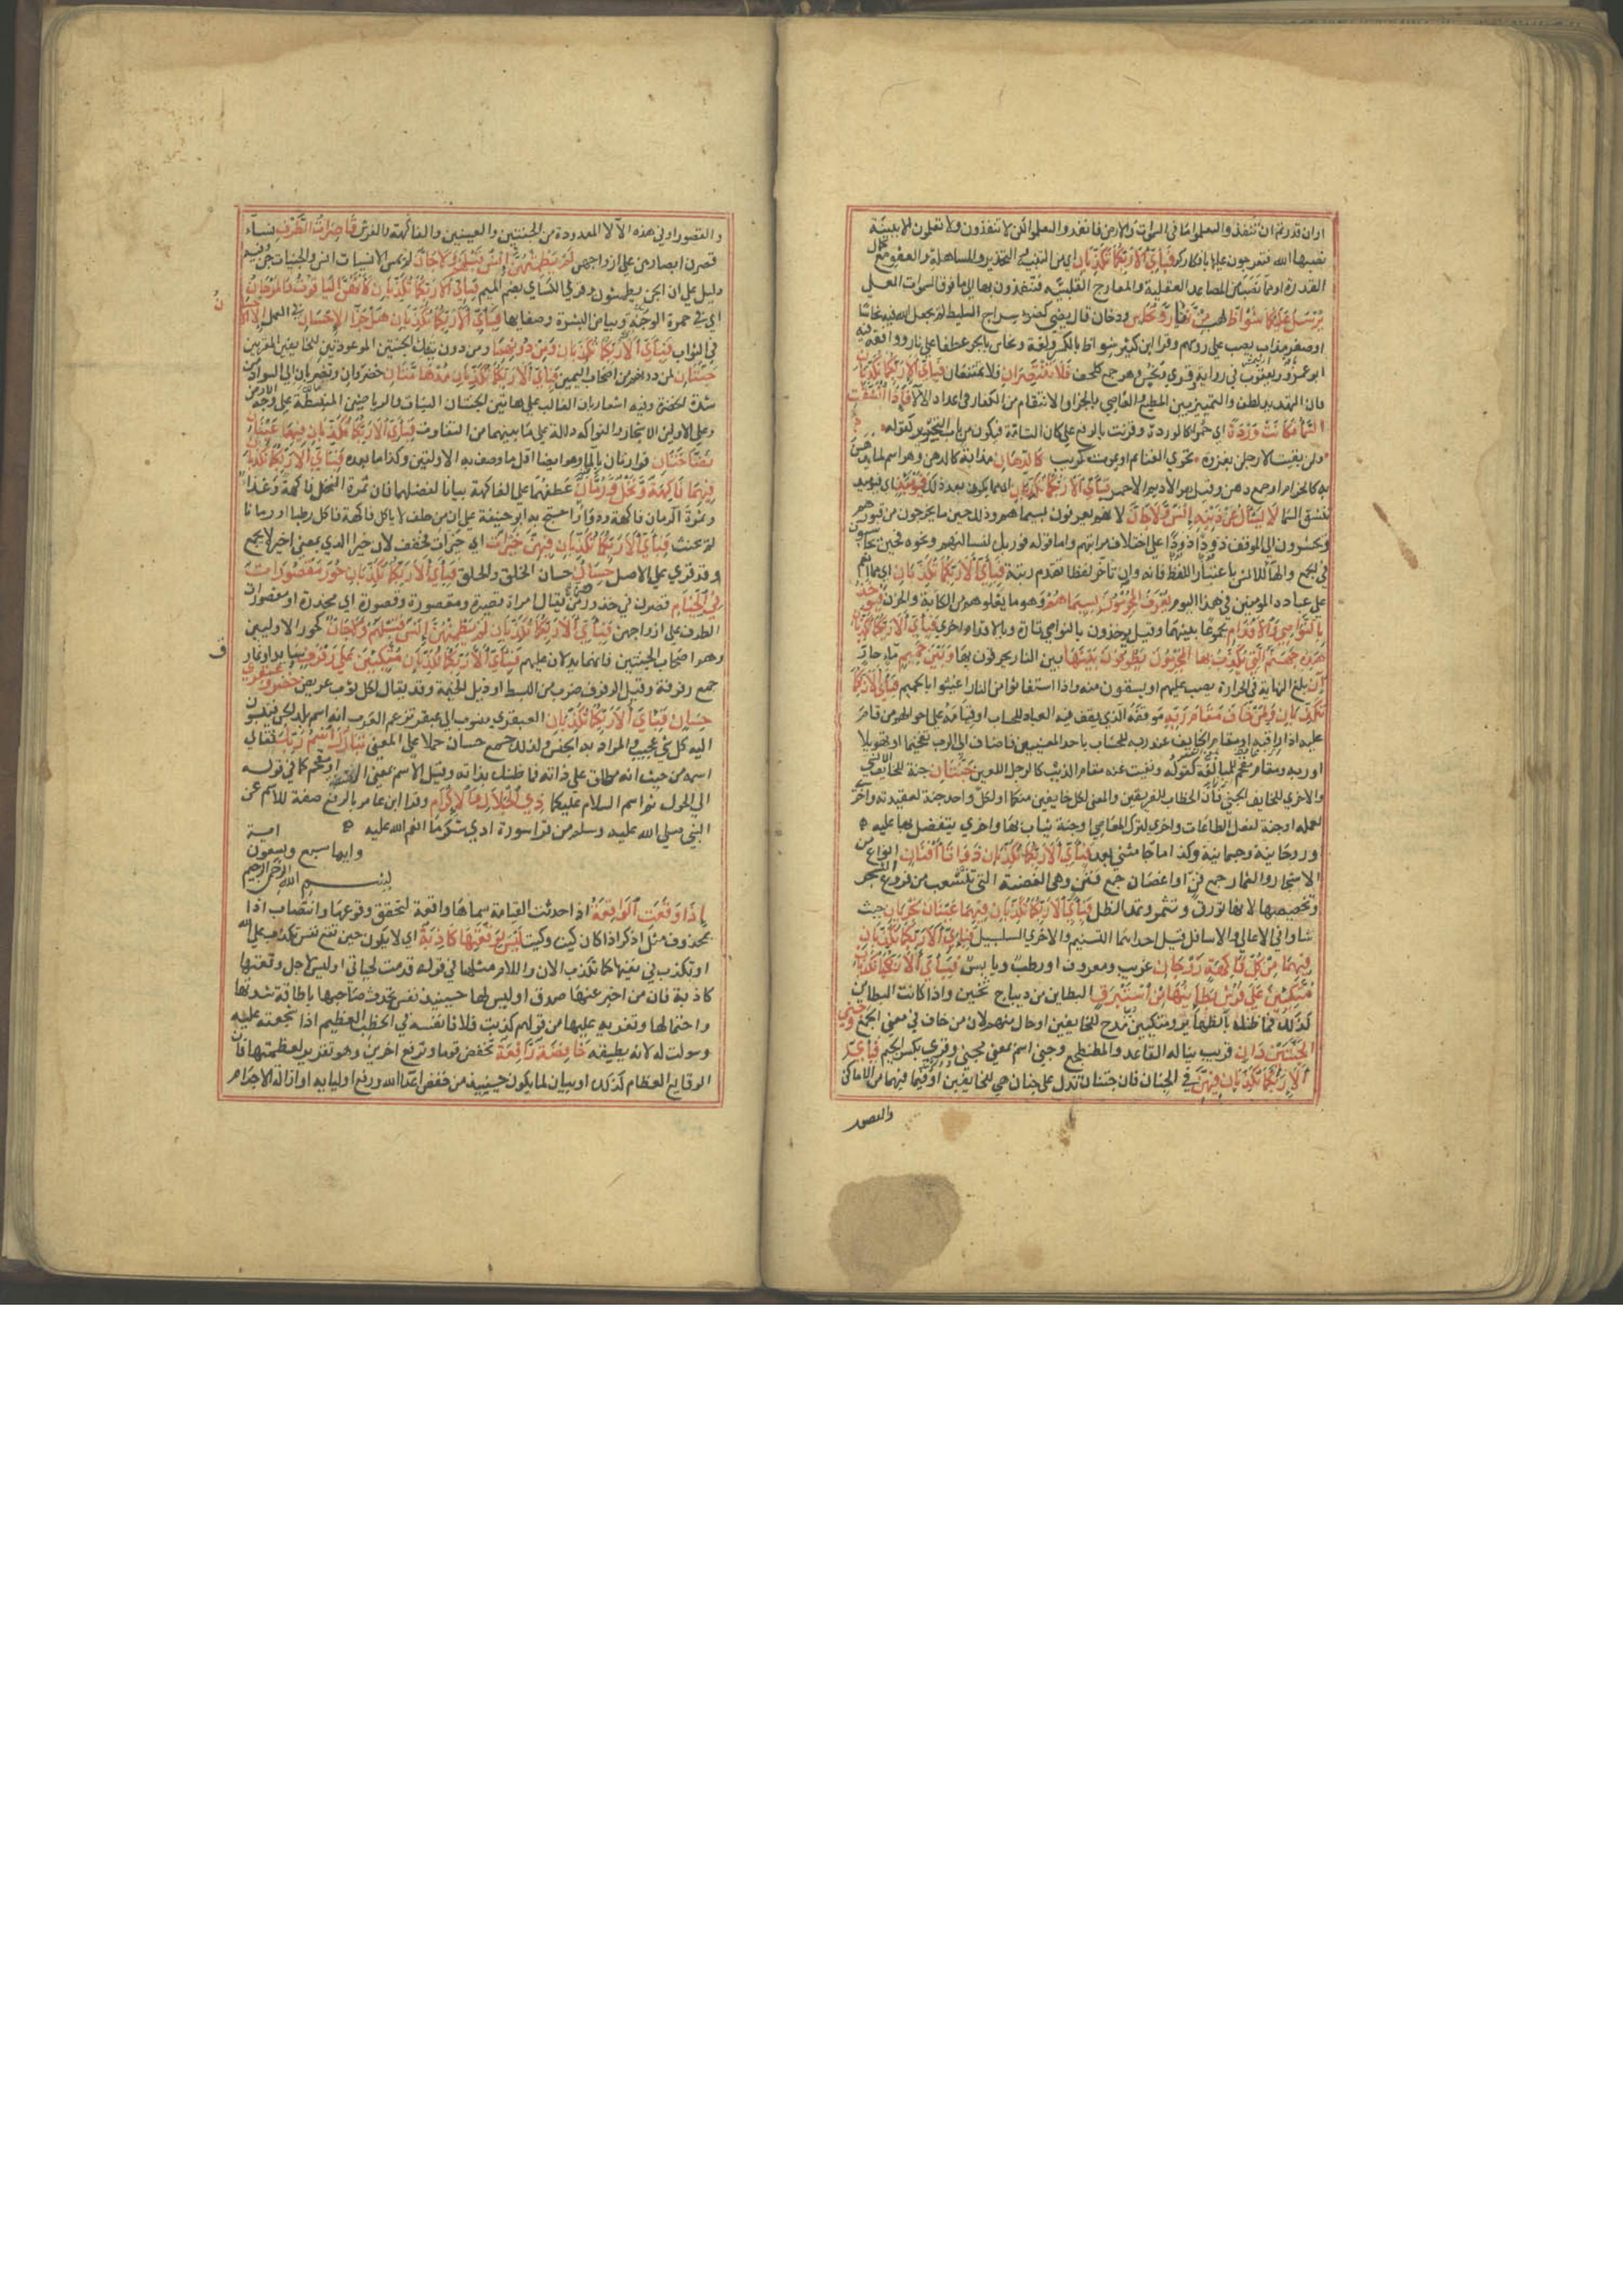 او ان قدرتم ان تنفذوا لتعلموا ما في السموات والارض فانفذوا لتعلموا لكن لا تنفذون ولا تعلمون الا ببينة
نصبها الله فتعرجون عليها بافكاركم فباي الآء ربكما تكذبان اي من التنبيه والتحذير والمساهلة والعفو مع كمال
القدرة او مما نصب من المصاعد العقلية والمعارج النقلية فتنفذون بها الى ما فوق السموات العلى
يرسل عليكما شواظ لهب من نار ونحاس ودخان قال يضي كضوء سراج السليط لم يجعل الله فيه نحاسا
او صفر مذاب يصب على رؤسهم وقرا ابن كثير شواظ بالكسر وهو لغة ونحاس بالجر عطفا على نار ووافقه فيه
ابو عمرو ويعقوب في رواية وقري ونحس وهو جمع كلحف فلا تنتصران فلا تمتنعان فباي الآء ربكما تكذبان
فان التهديد لطف والتمييز بين المطيع والعاصي بالجزا والانتقام من الكفار في اعداد الآلاء فاذا انشقت
السما فكانت وردة اي حمراء كالوردة وقريت بالرفع على كان التامة فيكون من باب التجريد كقوله
ولئن بقيت لارحلن بغزوة تحوي الغنائم او يموت كريم كالدهان مذابة كالدهن وهو اسم لما يدهن
به كالحزام او جمع دهن وقيل هو الاديم الاحمر فباي الآء ربكما تكذبان اي مما يكون بعد ذلك فيومئذ اي فيوم
تنشق السما لا يسال عن ذنبه انس ولا جان لانهم يعرفون بسيماهم وذلك حين ما يخرجون من قبورهم
ويحشرون الى الموقف ذودا ذودا على اختلاف مراتبهم واما قوله فوربك لنسالنهم ونحوه فحين يحاسبون
في المجمع والهاء للانس باعتبار اللفظ فانه وان تاخر لفظا تقدم رتبة فباي الآء ربكما تكذبان اي مما انعم
على عباده المؤمنين في هذا اليوم يعرف المجرمون بسيماهم وهو ما يعلوهم من الكابة والحزن فيوخذ
بالنواصي والاقدام مجموعا بينهما وقيل يوخذون بالنواصي تارة وبالاقدام اخري فباي الآء ربكما تكذبان
هذه جهنم التي يكذب بها المجرمون يطوفون بينها بين النار يحرقون بها وبين حميم ماء حار
آن بلغ النهاية في الحرارة يصب عليهم او يسقون منه وقيل اذا استغاثوا من النار اغيثوا بالحميم فباي الآء ربكما
تكذبان ولمن خاف مقام ربه موقفه الذي يقف فيه العباد للحساب او قيامه على احواله من قام
عليه اذا راقبه او مقام الخايف عند ربه للحساب باحد المعنيين فاضاف الى الرب تفخيما او تهويلا
او ربه ومقام مقحم للمبالغة كقوله ونفيت عنه مقام الذيب كالرجل اللعين جنتان جنة للخايف الانسي
والاخري للخايف الجني فان الخطاب للفريقين والمعنى لكل خايفين منكما او لكل واحد جنة لعقيدته واخري
لعمله او جنة لفعل الطاعات واخري لترك المعاصي او جنة يثاب بها واخري يتفضل بها عليه
او روحانية وجسمانية وكذا ما جا مثنى بعد فباي الآء ربكما تكذبان ذواتا افنان انواع من
الاشجار والثمار جمع فن او اغصان جمع فنن وهي الغصنة التي تتشعب من فروع الشجر
وتخصيصها لانها تورق وتثمر وتمد الظل فباي الآء ربكما تكذبان فيهما عينان تجريان حيث
شاوا في الاعالي والاسافل قيل احداهما التسنيم والاخري السلسبيل فباي الآء ربكما تكذبان
فيهما من كل فاكهة زوجان غريب ومعروف او رطب ويابس فباي الآء ربكما تكذبان
متكئين على فرش بطاينها من استبرق البطاين من ديباج ثخين واذا كانت البطاين
كذلك فما ظنك بالظهاير ومتكيين مدح للخايفين او حال منهم لان من خاف في معنى الجمع وجنى
الجنتين دان قريب يناله القاعد والمضطجع وجنى اسم بمعنى مجنى وقري بكسر الجيم فباي
الآء ربكما تكذبان فيهن في الجنان فان جنتان تدل على جنان هي للخايفين او فيما فيهما من الاماكن
والقصور
والقصور او في هذه الآلا المعدودة من الجنتين والعينين والفاكهة والفرش قاصرات الطرف نساء
قصرن ابصارهن على ازواجهن لم يطمثهن انس قبلهم ولا جان لم يمس الانسيات انس ولا الجنيات جن وفيه
دليل على ان الجن يطمثون وقرا الكساي بضم الميم فباي الآء ربكما تكذبان كانهن الياقوت والمرجان
اي في حمرة الوجنة وبياض البشرة وصفايها فباي الآء ربكما تكذبان هل جزاء الاحسان في العمل الا الاحسان
في الثواب فباي الآء ربكما تكذبان ومن دونهما ومن دون تينك الجنتين الموعودتين للخايفين المقربين
جنتان لمن دونهم من اصحاب اليمين فباي الآء ربكما تكذبان مدهامتان خضراوان تضربان الى السواد من
شدة الخضرة وفيه اشعار بان الغالب على هاتين الجنتين النبات والرياحين المنبسطة على وجه الارض
وعلى الاوليين الاشجار والفواكه دلالة على ما بينهما من التفاوت فباي الآء ربكما تكذبان فيهما عينان
نضاختان فوارتان بالما وهو ايضا اقل مما وصف به الاوليين وكذا ما بعده فباي الآء ربكما تكذبان
فيهما فاكهة ونخل ورمان عطفهما على الفاكهة بيانا لفضلهما فان ثمرة النخل فاكهة وغذاء
وثمرة الرمان فاكهة ودواء واحتج به ابو حنيفة على ان من حلف لا ياكل فاكهة فاكل رطبا او رمانا
لم يحنث فباي الآء ربكما تكذبان فيهن خيرات اي خيرات فخفف لان خيرا الذي بمعنى اخير لا يجمع
وقد قري على الاصل حسان حسان الخلق والخلق فباي الآء ربكما تكذبان حور مقصورات
في الخيام قصرن في خدورهن يقال امراة قصيرة ومقصورة وقصورة اي مخدرة او مقصورات
الطرف على ازواجهن فباي الآء ربكما تكذبان لم يطمثهن انس قبلهم ولا جان كحور الاوليين
وهم اصحاب الجنتين فانهما يدلان عليهم فباي الآء ربكما تكذبان متكئين على رفرف وسايد او نمارق
جمع رفرفة وقيل الرفرف ضرب من البسط او ذيل الخيمة وقد يقال لكل ثوب عريض خضر وعبقري
حسان فباي الآء ربكما تكذبان العبقري منسوب الى عبقر تزعم العرب انه اسم بلد الجن فينسبون
اليه كل شي عجيب والمراد به الجنس ولذلك جمع حسان حملا على المعنى تبارك اسم ربك تعالى
اسمه من حيث انه مطلق على ذاته فما ظنك بذاته وقيل الاسم بمعنى الصفة او مقحم كما في قوله
الى الحول ثم اسم السلام عليكما ذي الجلال والاكرام وقرا ابن عامر بالرفع صفة للاسم عن
النبي صلى الله عليه وسلم من قرا سورة ادي شكر ما انعم الله عليه
وايها سبع وتسعون اية
بسم الله الرحمن الرحيم
اذا وقعت الواقعة اذا حدثت القيامة سماها واقعة لتحقق وقوعها وانتصاب اذا
بمحذوف مثل اذكر اذا كان كيت وكيت ليس لوقعتها كاذبة اي لا يكون حين تقع نفس تكذب على الله
او تكذب في نفيها كما تكذب الان واللام مثلها في قوله قدمت لحياتي او ليس لاجل وقعتها
كاذبة فان من اخبر عنها صدق او ليس لها حينيذ نفس تحدث صاحبها باطاقة شدتها
واحتمالها وتغريه عليها من قولهم كذبت فلانا نفسه في الخطب العظيم اذا شجعته عليه
وسولت له انه يطيقه خافضة رافعة تخفض قوما وترفع اخرين وهو تقرير لعظمتها فان
الوقايع العظام كذلك او بيان لما يكون حينيذ من خفض اعداء الله ورفع اوليايه او ازالة الاجرام